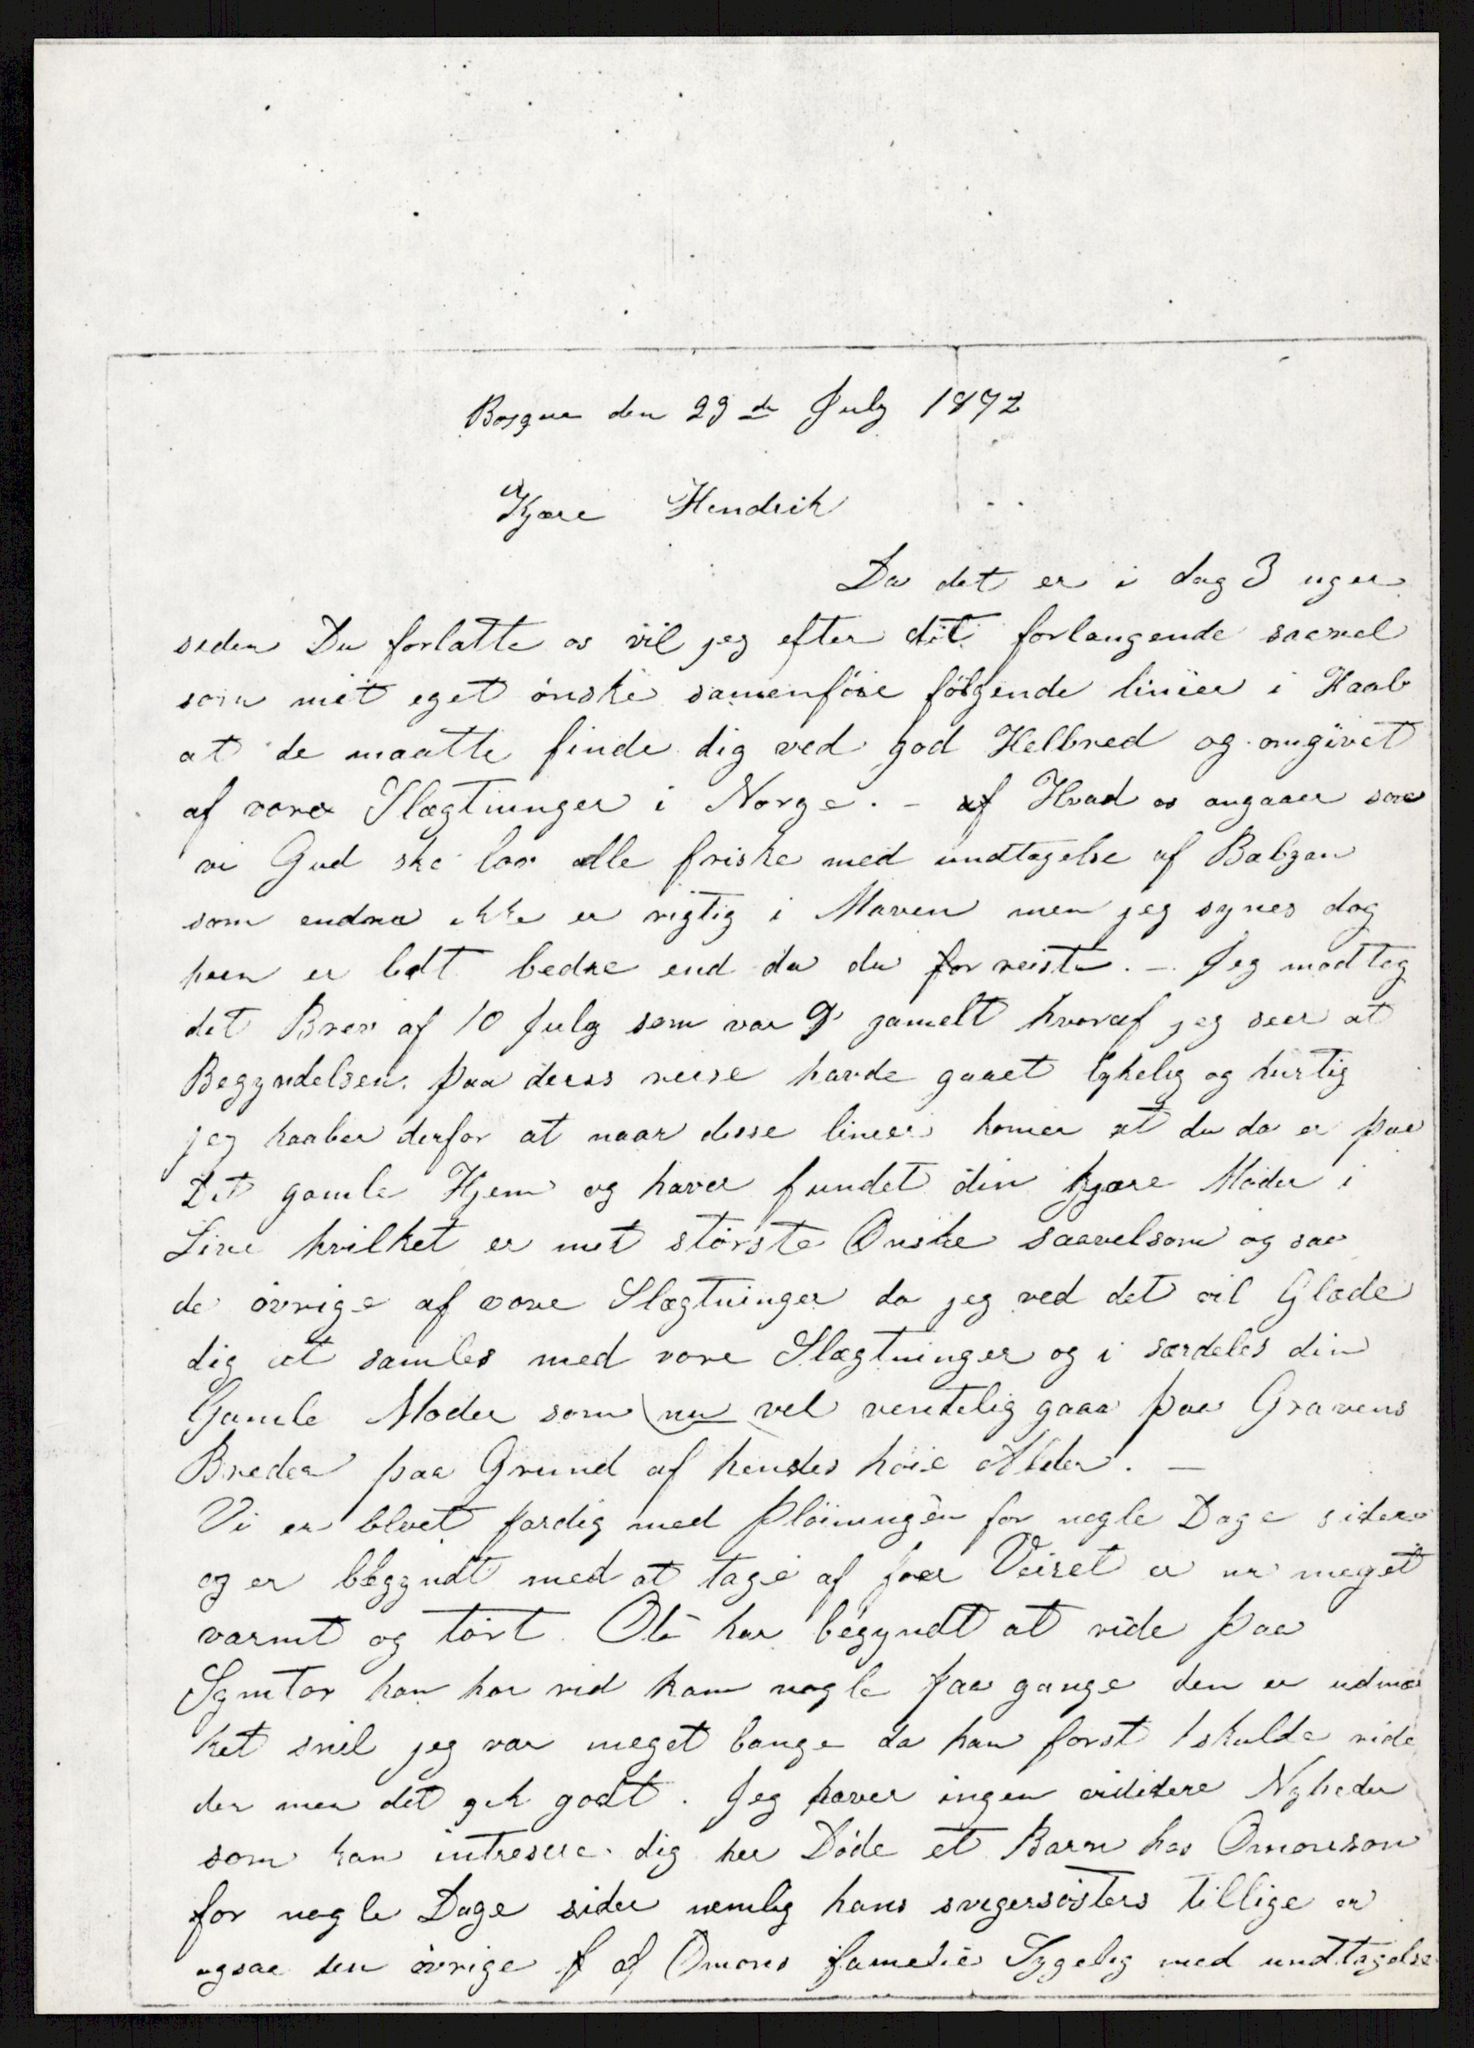 Bosque den 29de July 1872
Kjære Hendrik
Da det er i dag 3 uger
siden Du forlatte os vil jeg efter dit forlangende saavel
som mit eget önske samenföie fölgende linier i Haab
at de maatte finde dig ved god Helbred og omgivet
af vore Slægtninger i Norge. – af Hvad os angaaer saa
vi Gud ske lov alle friske med undtagelse af
som endnu ikke er rigtig i Maven men jeg synes dog
hun er lidt bedre end da du for reiste. – Jeg modtog
dit Brev af 10 July som var 9 gamelt hvoraf jeg seer at
Begyndelsen paa deres reise havde gaaet lykelig og hurtig
jeg haaber derfor at naar disse linier komer at du da er paa
Dit gamle Hjem og haver fundet din kjære Moder i
Live hvilket er mit störste Önske saavelsom og saa
de övrige af vore Slægtninger da jeg ved det vil Glæde
dig at samles med vore Slægtninger og i særdeles din
Gamle Moder som nu vel ventelig gaaa paa Gravens
Breder paa Grund af hendes höie Alder. –
Vi er blvet færdig med Plöiningen for nogle Dage siden
og er begyndt med at tage af foer Veiret er nu meget
varmt og tört. Ole har begyndt at ride paa
han har rid ham nogle faa gange den er udmær
ket snil jeg var meget bange da han först skulde ride
den men det gik godt. Jeg haver ingen vididere Nyheder
som kan intresere dig her Döde et Barn hos Omonson
for nogle Dage siden nemlig hans svigersösters tillige er
ogsaa den övrige f af Omons familie Sygelig med undtagelse